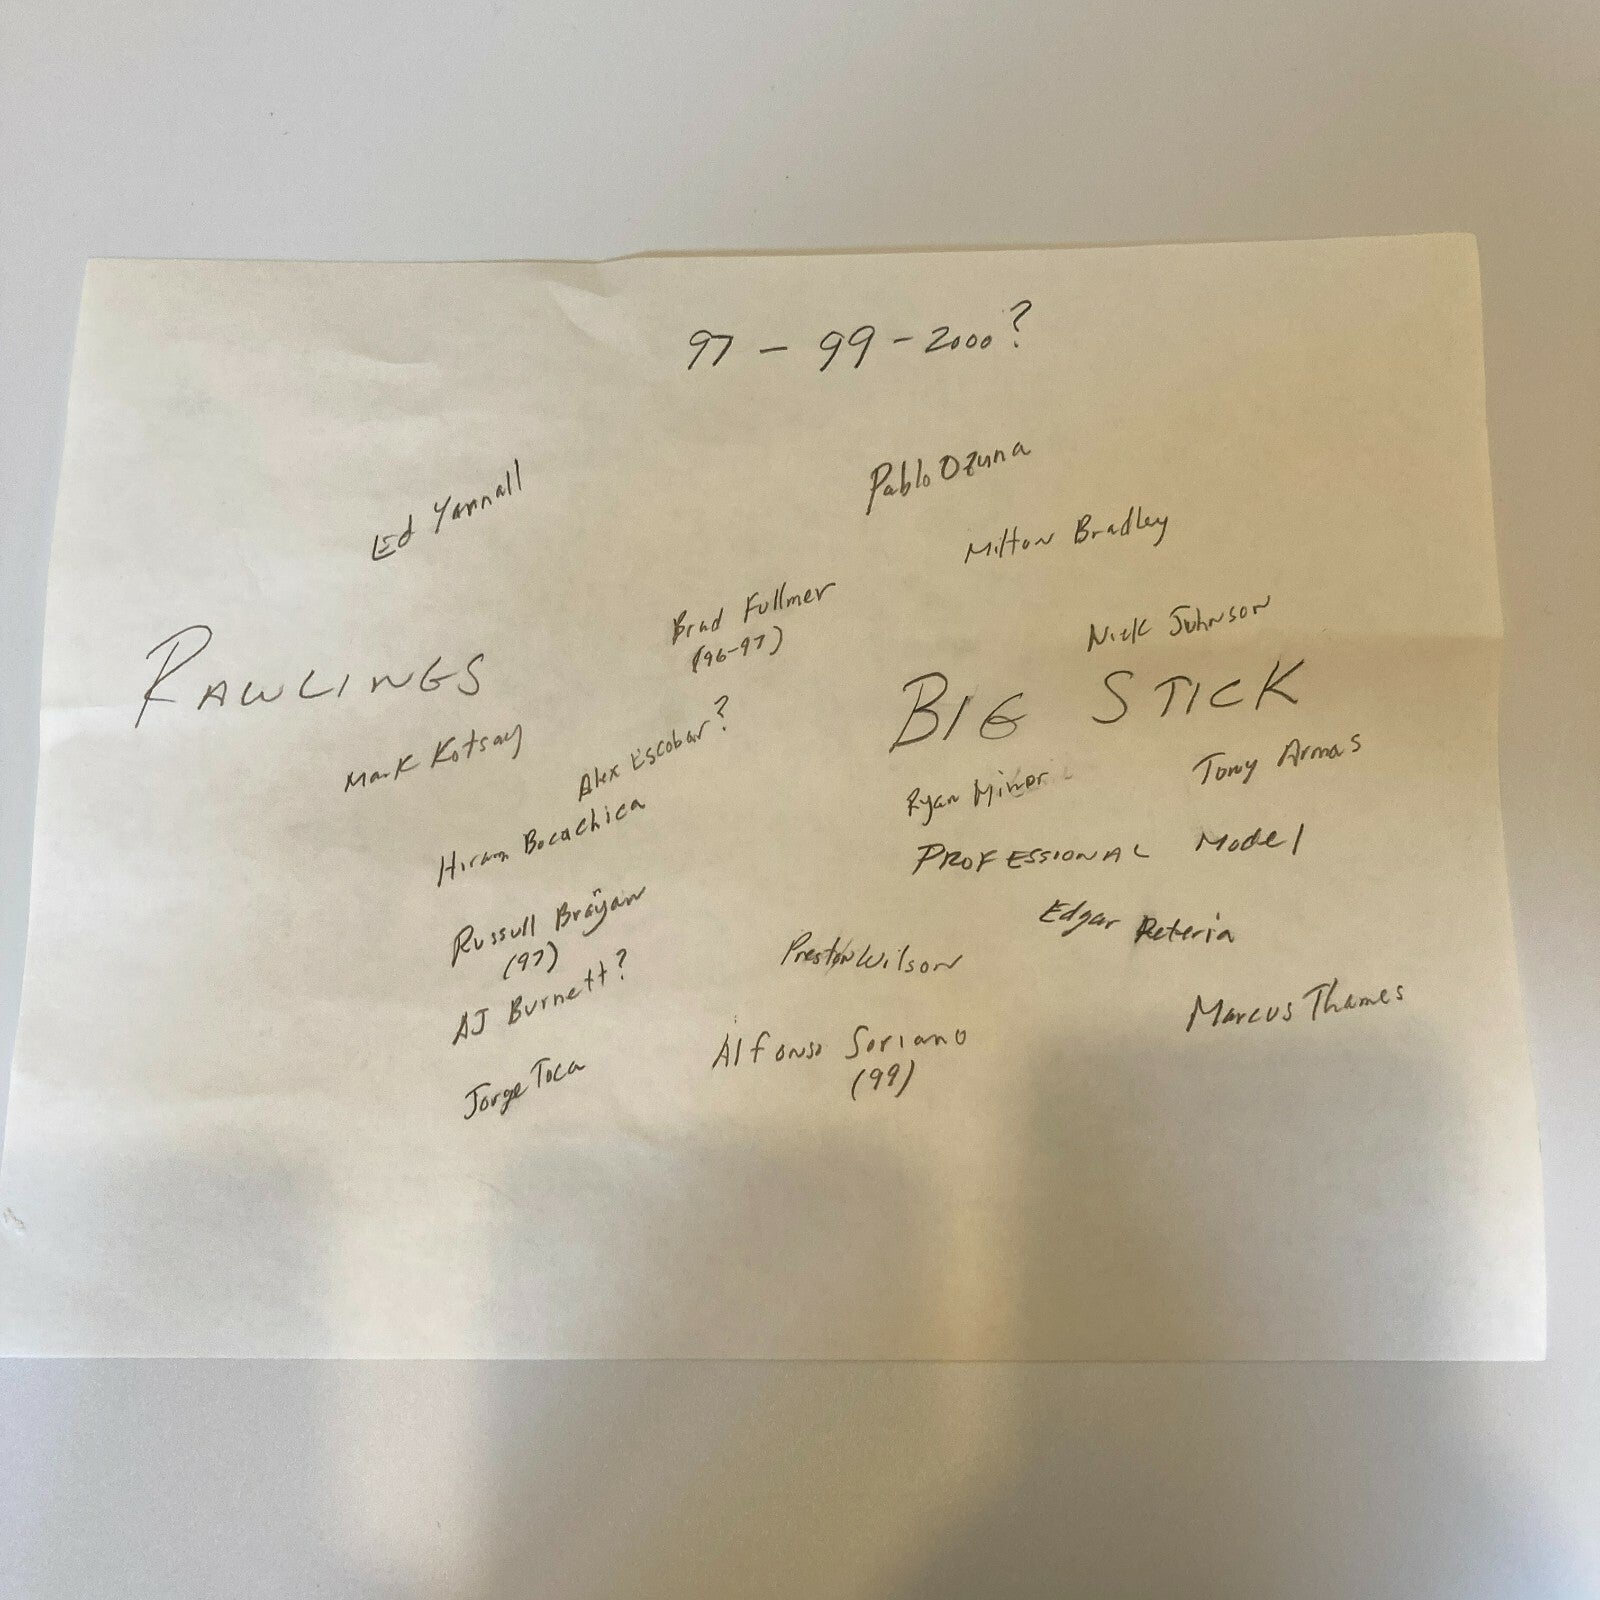 97 - 99 - 2000?
Ed Yarnall
Pablo Ozuna
Milton Bradley
Brad Fullmer
(96-97)
Nick Johnson
RAWLINGS
BIG STICK
Mark Kotsay
Alex Escobar?
Ryan Minor
Tony Armas
Hiram Bocachica
PROFESSIONAL Model
Russull Brayan
(97)
Edgar Reteria
Preston Wilson
AJ Burnett?
Marcus Thames
Alfonso Soriano
(99)
Jorge Toca